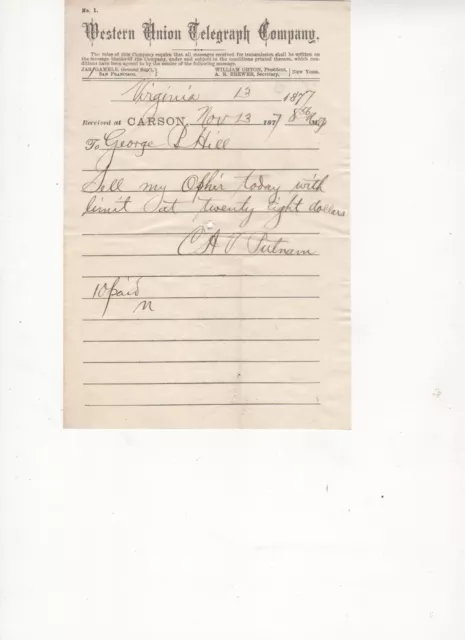 No. 1.
Western Union Telegraph Company.
The rules of this Company require that all messages received for transmission shall be written on
the message blanks of the Company, under and subject to the conditions printed thereon, which con-
ditions have been agreed to by the sender of the following message.
JAS. GAMBLE, General Sup't, SAN FRANCISCO. WILLIAM ORTON, President, A. R. BREWER, Secretary, NEW YORK.
Virginia 13 1877
Received at CARSON, Nov 13 1877
To George L Hill
Sell my Ophir today with
limit at twenty eight dollars
C H V Putnam
10 paid
n